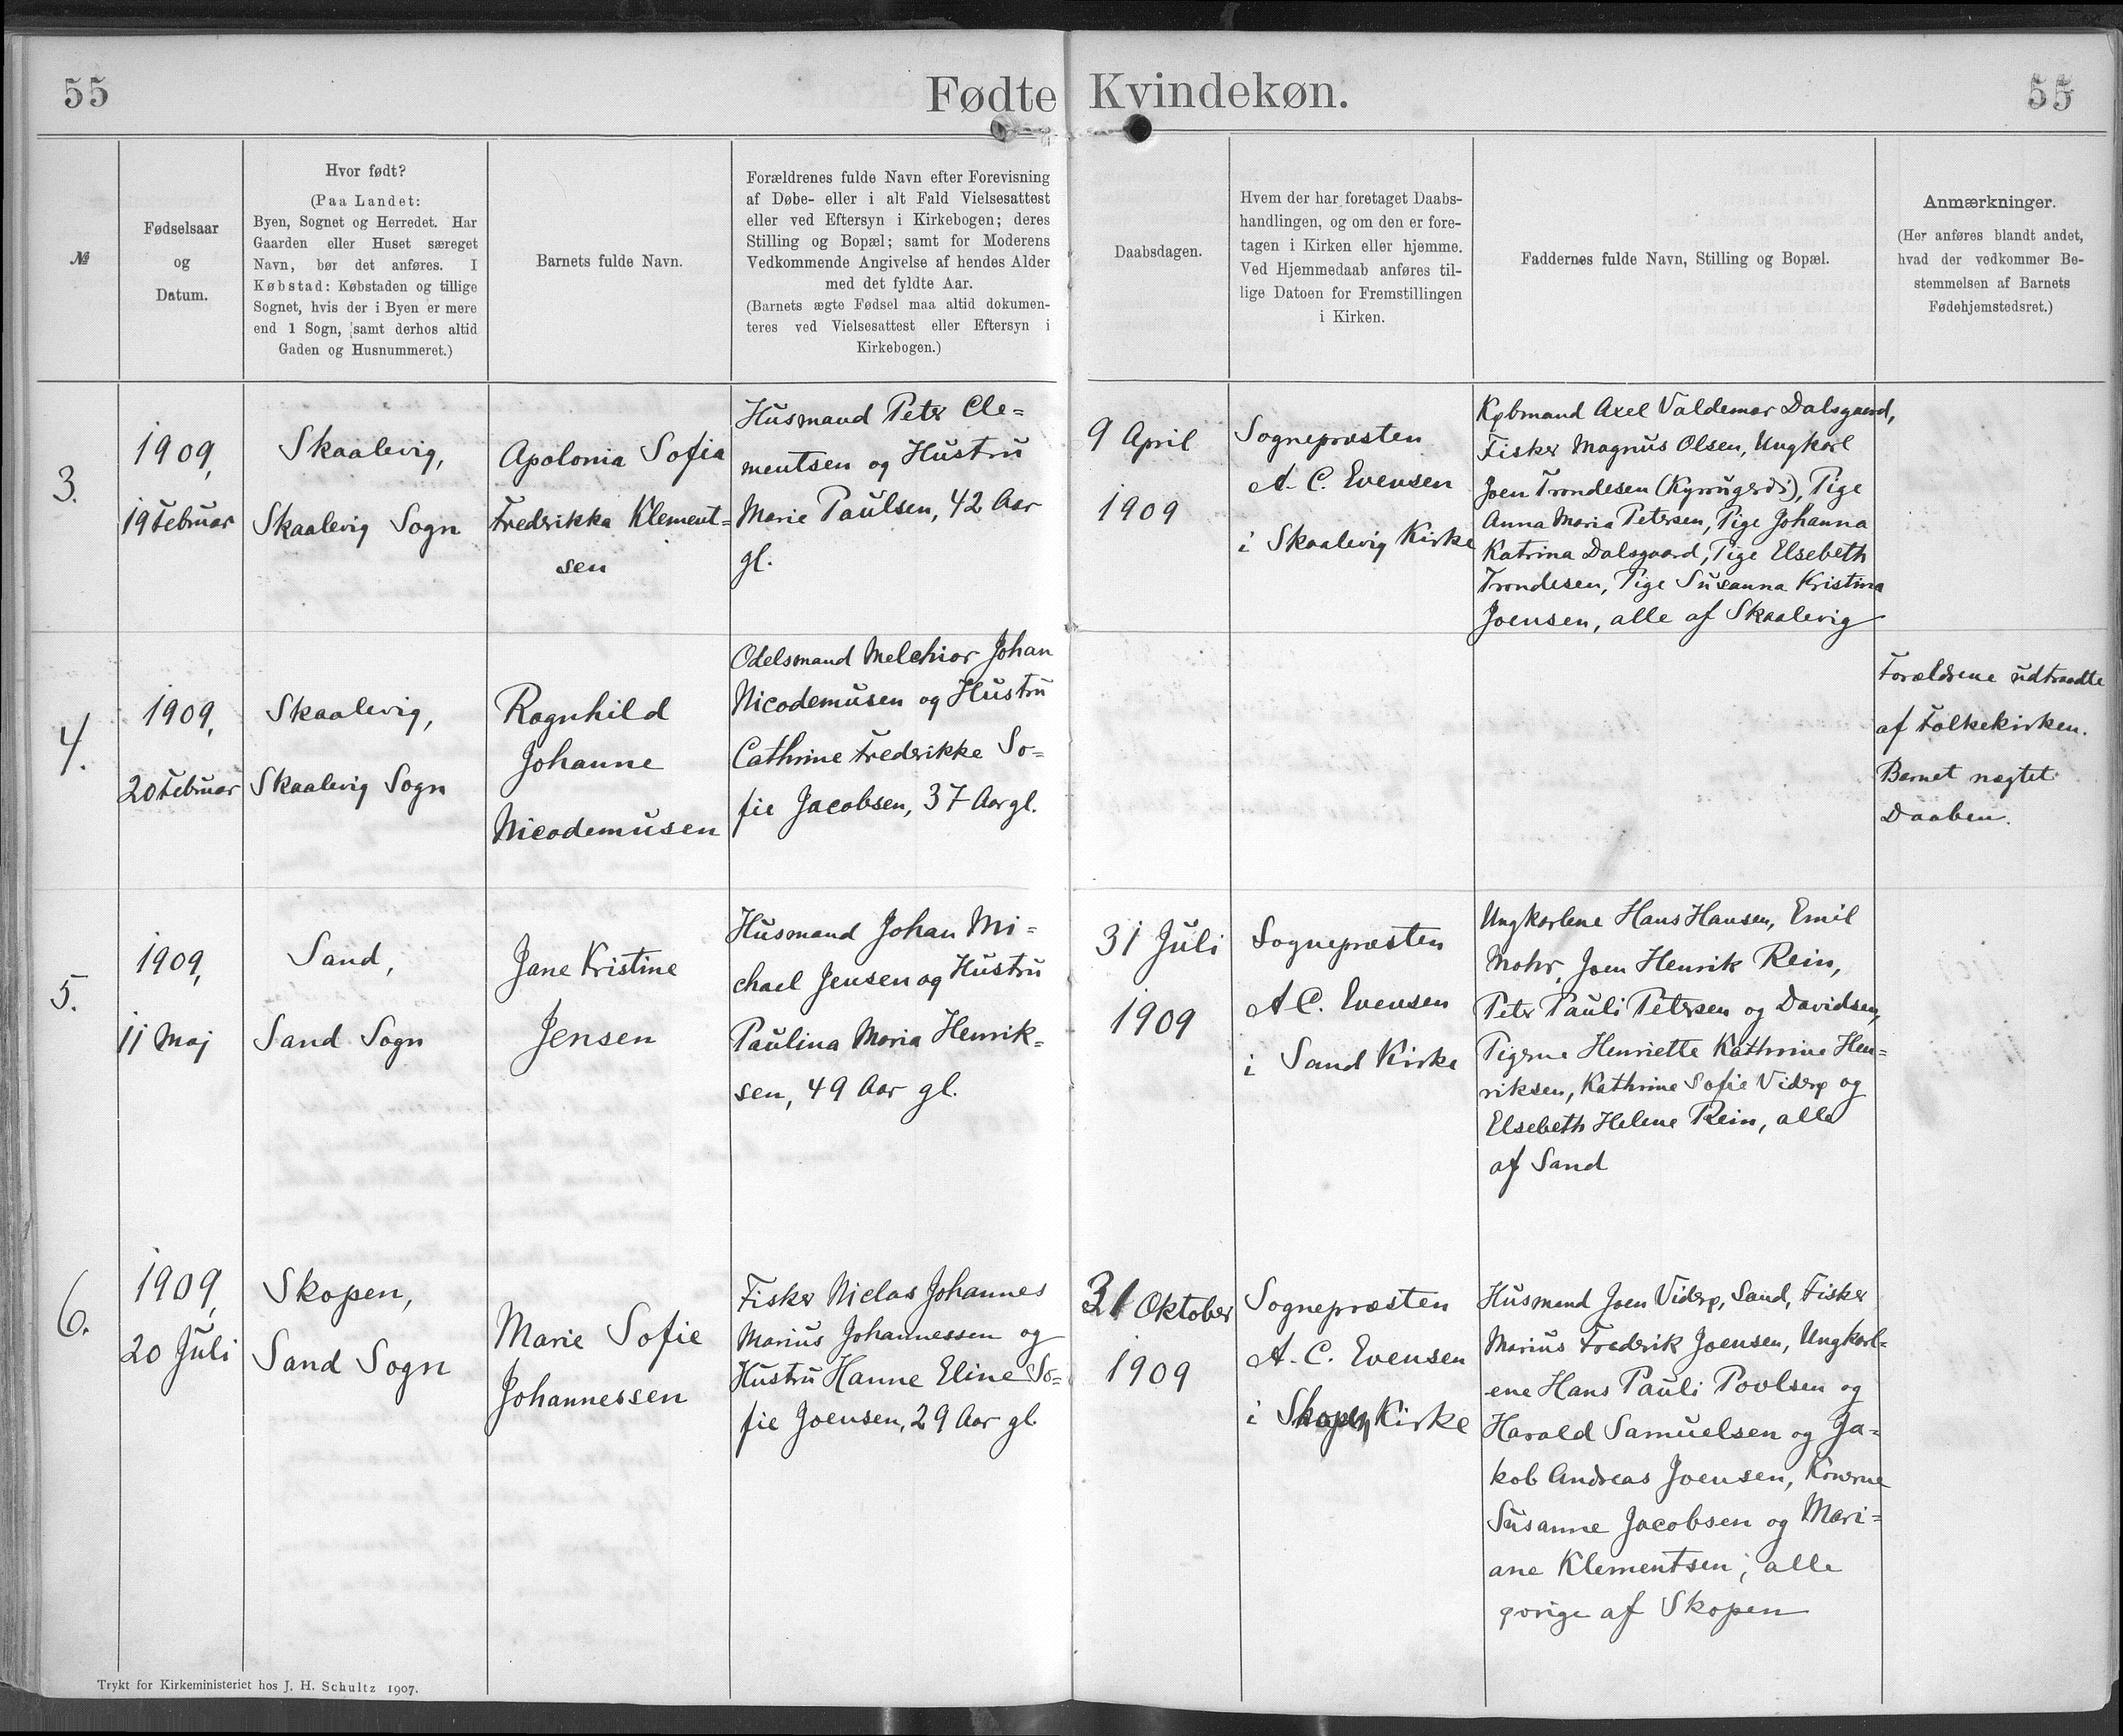 55
Fødte Kvindekøn.
55
№
Fødselsaar
og
Datum.
Hvor født?
(Paa Landet:
Byen, Sognet og Herredet. Har
Gaarden eller Huset særeget
Navn, bør det anføres. I
Købstad: Købstaden og tillige
Sognet, hvis der i Byen er mere
end 1 Sogn, samt derhos altid
Gaden og Husnummeret.)
Barnets fulde Navn.
Forældrenes fulde Navn efter Forevisning
af Døbe- eller i alt Fald Vielsesattest
eller ved Eftersyn i Kirkebogen; deres
Stilling og Bopæl; samt for Moderens
Vedkommende Angivelse af hendes Alder
med det fyldte Aar.
(Barnets ægte Fødsel maa altid dokumen-
teres ved Vielsesattest eller Eftersyn i
Kirkebogen.)
Daabsdagen.
Hvem der har foretaget Daabs-
handlingen, og om den er fore-
tagen i Kirken eller hjemme.
Ved Hjemmedaab anføres til-
lige Datoen for Fremstillingen
i Kirken.
Faddernes fulde Navn, Stilling og Bopæl.
Anmærkninger.
(Her anføres blandt andet,
hvad der vedkommer Be-
stemmelsen af Barnets
Fødehjemstedsret.)
3.
1909,
19 Februar
Skaalevig,
Skaalevig Sogn
Apolonia Sofia
Fredrikka Klement=
sen
Husmand Peter Cle=
mentsen og Hustru
Marie Paulsen, 42 Aar
gl.
9 April
1909
Sognepræsten
A. C. Evensen
i Skaalevig Kirke
Købmand Axel Valdemar Dalsgaard,
Fisker Magnus Olsen, Ungkarl
Joen Trondesen (Kyrrugerði), Pige
Anna Maria Petersen, Pige Johanna
Katrina Dalsgaard, Pige Elsebeth
Trondesen, Pige Susanna Kristina
Joensen, alle af Skaalevig
4.
1909,
20 Februar
Skaalevig,
Skaalevig Sogn
Ragnhild
Johanne
Nicodemusen
Odelsmand Melchior Johan
Nicodemusen og Hustru
Cathrine Fredrikke So=
fie Jacobsen, 37 Aar gl.
Forældrene udtraadte
af Folkekirken.
Barnet nægtet
Daaben.
5.
1909,
11 Maj
Sand,
Sand Sogn
Jane Kristine
Jensen
Husmand Johan Mi=
chael Jensen og Hustru
Paulina Maria Henrik=
sen, 49 Aar gl.
31 Juli
1909
Sognepræsten
A C. Evensen
i Sand Kirke
Ungkarlene Hans Hansen, Emil
Mohr, Joen Henrik Rein,
Peter Pauli Petersen og Davidsen,
Pigerne Henriette Kathrine Hen=
riksen, Kathrine Sofie Viderø og
Elsebeth Helene Rein, alle
af Sand
6.
1909,
20 Juli
Skopen,
Sand Sogn
Marie Sofie
Johannessen
Fisker Niclas Johannes
Marius Johannessen og
Hustru Hanne Eline So=
fie Joensen, 29 Aar gl.
31 Oktober
1909
Sognepræsten
A. C. Evensen
i Skopen Kirke
Husmand Joen Viderø, Sand, Fisker
Marius Fredrik Joensen, Ungkarl=
ene Hans Pauli Poulsen og
Harald Samuelsen og Ja=
kob Andreas Joensen, Konerne
Susanne Jacobsen og Mari=
ane Klementsen, alle
øvrige af Skopen
Trykt for Kirkeministeriet hos J. H. Schultz 1907.